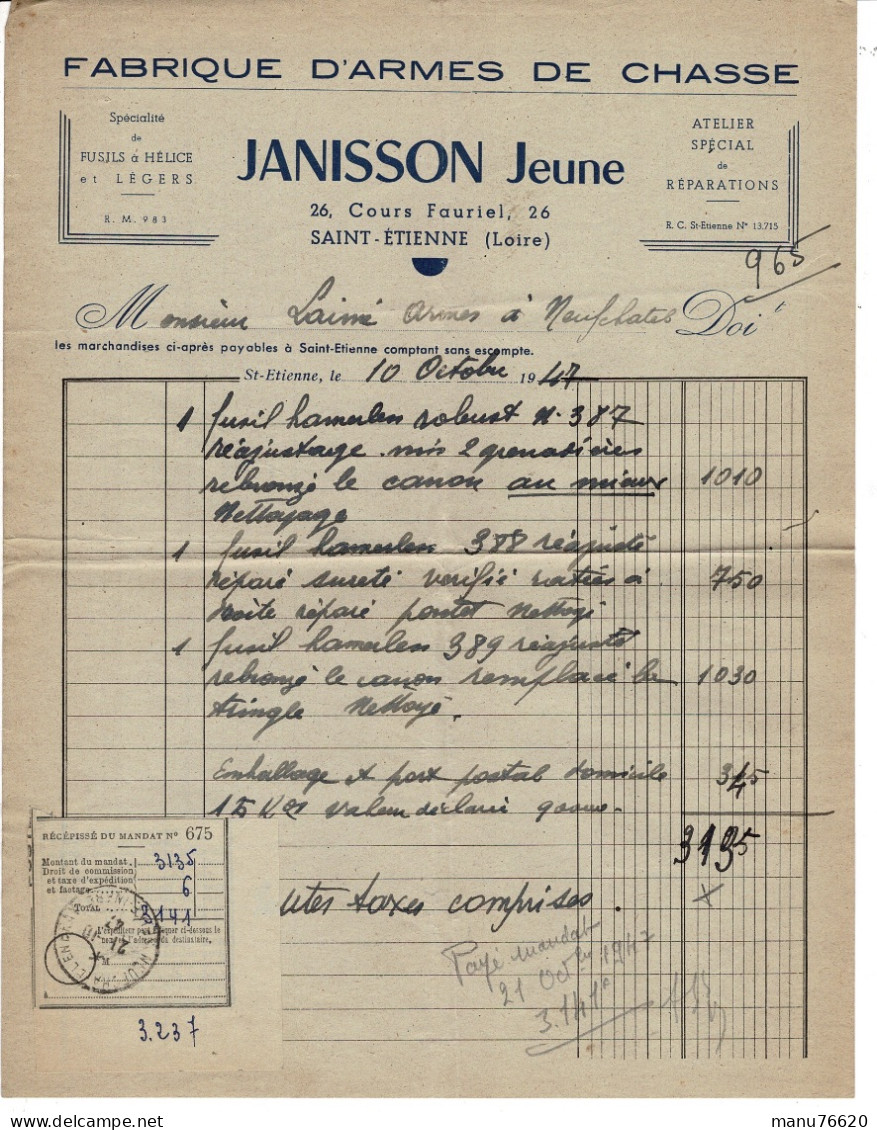 FABRIQUE D'ARMES DE CHASSE
Spécialité
de
FUSILS à HÉLICE
et LÉGERS
R. M. 983
JANISSON Jeune
26, Cours Fauriel, 26
SAINT-ÉTIENNE (Loire)
ATELIER
SPÉCIAL
de
RÉPARATIONS
R. C. St-Etienne N° 13.715
965
Monsieur Lainé Armes à Neufchatel Doit
les marchandises ci-après payables à Saint-Etienne comptant sans escompte.
St-Etienne, le 10 Octobre 1947
1 fusil hamerles robust N. 387
réajustage mis 2 grenadières
rebronzé le canon au mieux 1010
Nettoyage
1 fusil hamerles 388 réajusté
réparé sureté verifié ratées à 750
droite réparé pontet Nettoyé
1 fusil hamerles 389 réajusté
rebronzé le canon remplacé la 1030
tringle Nettoyé.
Emballage et port postal domicile 345
15 Kos valeur déclaré
3135
RÉCÉPISSÉ DU MANDAT N° 675
Montant du mandat. 3135
Droit de commission
et taxe d'expédition
et factage. 6
TOTAL 3141
L'expéditeur peut indiquer ci-dessous le
nom et l'adresse du destinataire.
utes taxes comprises.
Payé mandat
21 Oct 1947
3.141
3.237
manu76620